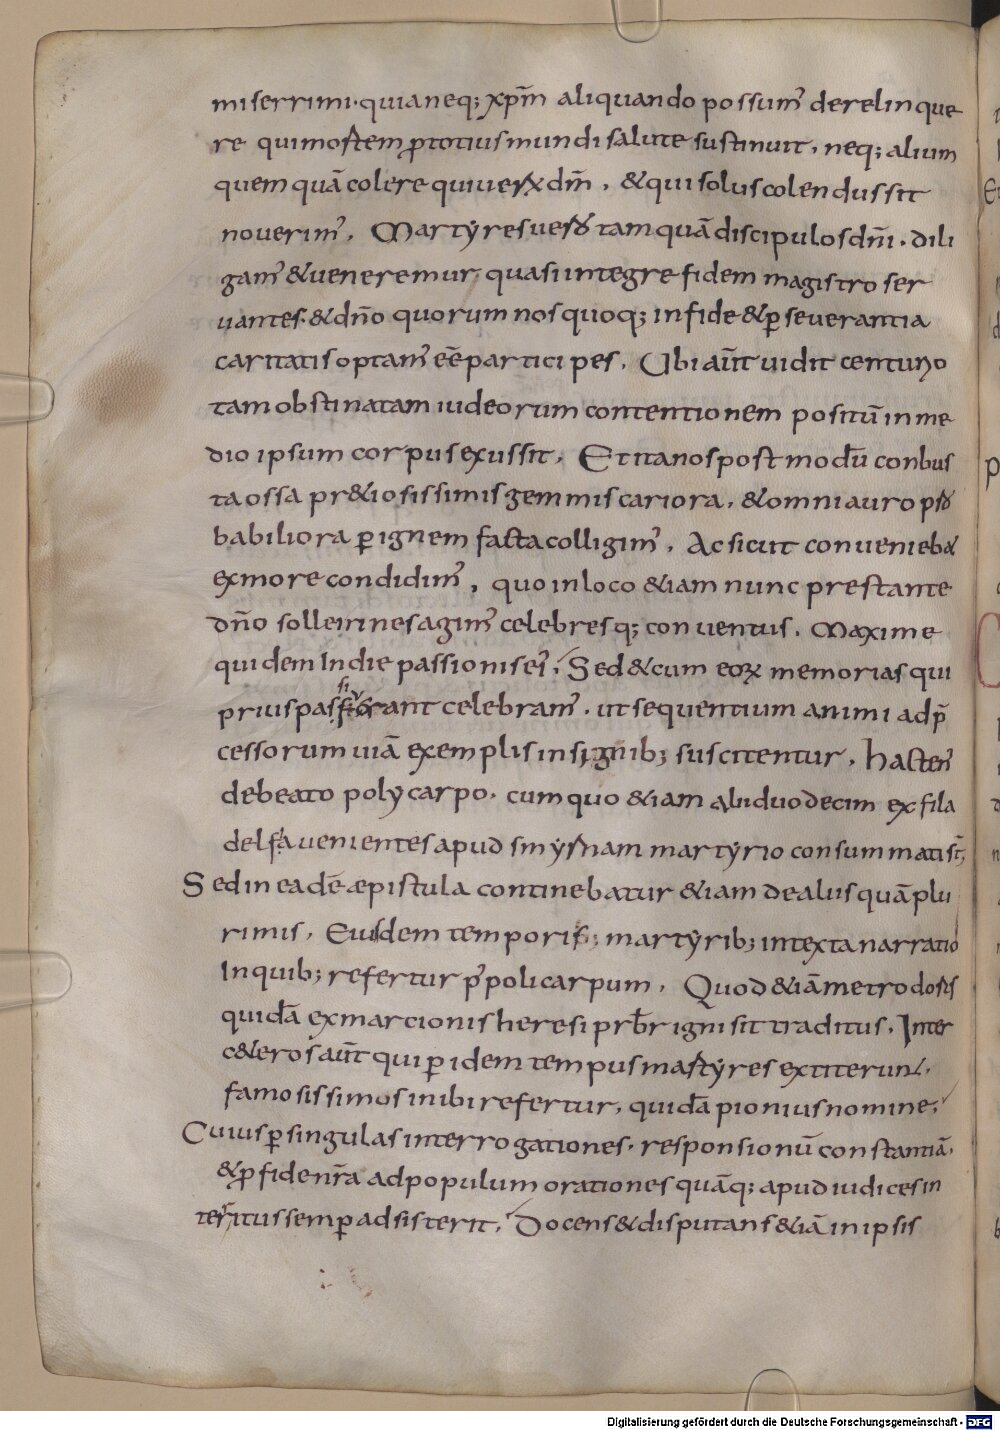 miserrimi. quia neq; xp̄m aliquando possum' derelinque
re qui mortem ꝓ totius mundi salute sustinuit, neq; alium
quem quā colere qui uerꝝ dm̄, & qui solus colendus sit
nouerim'. Martẏres uero tam quā discipulos dn̄i. dili
gam' & ueneremur quasi integre fidem magistro ser
uantes. & dn̄o quorum nos quoq; in fide & ꝑseuerantia
caritatis optam' eē participes. Ubi aūt uidit centurio
tam obstinatam iudeorum contentionem positū in me
dio ipsum corpus exussit. Et ita nos post modū conbus
ta ossa p̲r&iosissimis gemmis cariora, & omni auro pro
babiliora ꝑ ignem facta colligim'. Ac sicut conueniebat
ex more condidim', quo in loco &iam nunc prestante
dn̄o sollemnes agim' celebresq; conuentus. Maxime
quidem In die passionis ei'. Sed & cum eoꝝ memorias qui
prius passi fuerant celebram'. ut sequentium animi adp̄
cessorum uiā exemplis insignib; suscitentur. hacten'
de beato polycarpo. cum quo &iam alii duodecim ex fila
delfia uenientes apud smẏrnam martẏrio consummati st̄;
Sed in eadē æpistula continebatur &iam de aliis quā plu
rimis. Eiusdem temporis; martẏrib; intexta narratio
In quib; refertur p' policarpum. Quod &iā metrodorus
quidā ex marcionis heresi prb̄r igni sit traditus. Inter
c&eros aūt qui ꝑ idem tempus martẏres extiterunt.
famosissimos inibi refertur, quidā pionius nomine,
Cuius ꝑ singulas interrogationes. responsionū constantiā.
& ꝓ fide nr̄a ad populum orationes quāq; apud iudices in
territus semꝑ adsisterit. Docens & disputans &iā in ipsis
Digitalisierung gefördert durch die Deutsche Forschungsgemeinschaft - DFG